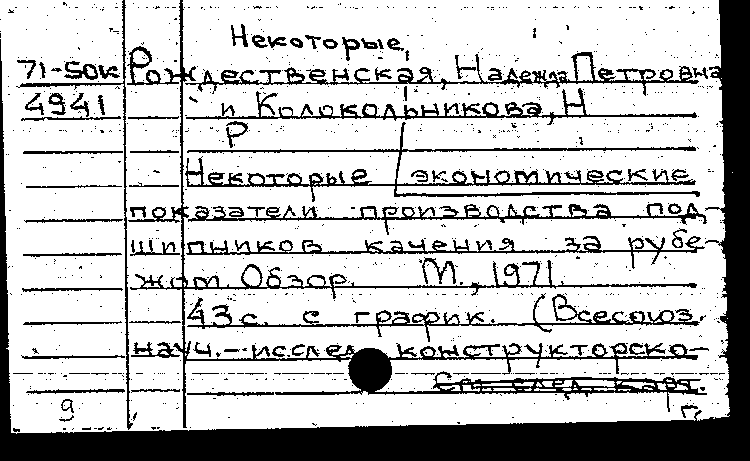 Некоторые
71-50к Рождественская, Надежда Петровна
4941 и Колокольникова, Н
Р
Некоторые экономические
показатели производства под-
шипников качения за рубе-
жом. Обзор. М., 1971.
43 с. с график. (Всесоюз.
науч.-исслед. конструкторско-
См. след. карт.
9